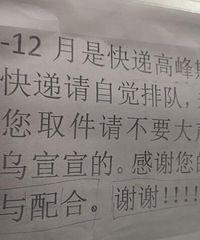 -12 月是快递高峰期
快递请自觉排队,
您取件请不要大声
乌宣宣的。感谢您的
与配合。谢谢!!!!